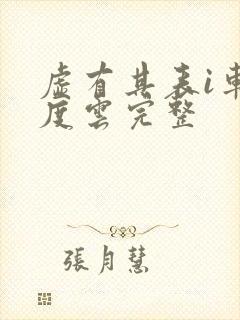 虛有其表i車
度雲完整
張月慧